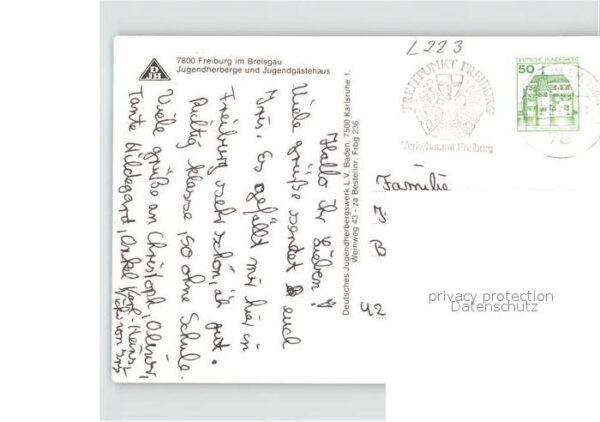 L223
DJH
7800 Freiburg im Breisgau
Jugendherberge und Jugendgästehaus
Hallo ihr Lieben!
Viele grüße sendet euch
Iris. Es gefällt mir hier in
Freiburg sehr schön, äh gut.
Richtig klasse, so ohne Schule.
Viele grüße an Christoph, Oliver,
Tante Hildegard, Onkel Karl-Heinz
von
Deutsches Jugendherbergswerk L.V. Baden, 7500 Karlsruhe 1,
Weinweg 43 - za Bestellnr. Frbg 236
TREFFPUNKT FREIBURG
Verkehrsamt Freiburg
DEUTSCHE BUNDESPOST
50
78
Familie
J
B
42
privacy protection
Datenschutz